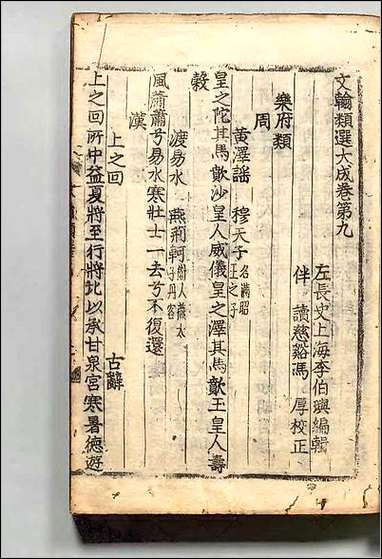 文翰類選大成卷第九
左長史上海李伯璵編輯
伴讀慈谿馮厚校正
樂府類
周
黃澤謠 穆天子名滿昭王之子
皇之陀其馬歕沙皇人威儀皇之澤其馬歕玉皇人壽
穀
渡易水 燕荊軻衛人燕太子丹客
風蕭蕭兮易水寒壯士一去兮不復還
漢
上之回 古辭
上之回所中益夏將至行將北以承甘泉宮寒暑德遊